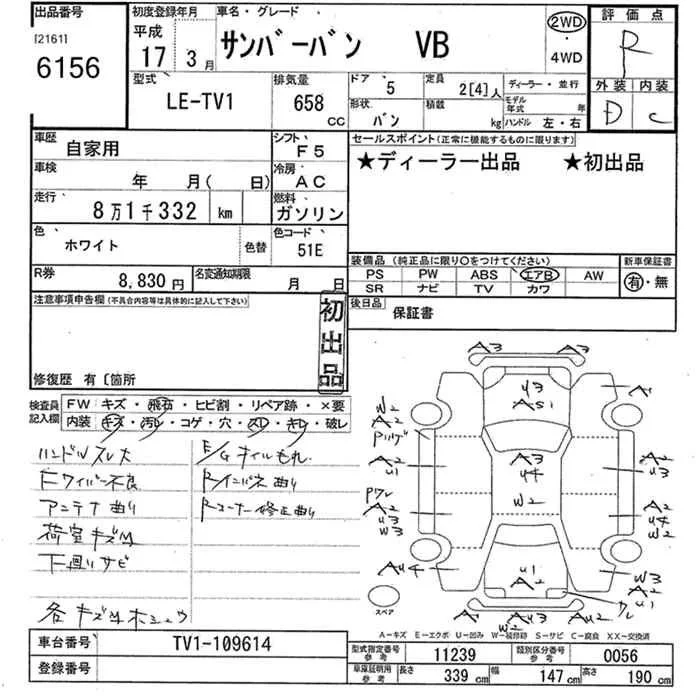 出品番号 初度登録年月 車名・グレード 評価点
[2161] 平成 2WD
6156 17 3月 サンバーバン VB ・ R
4WD
型式 排気量 ドア 5 定員 2[4]人 ディーラー・並行 外装 内装
LE-TV1 658 cc 形状 バン 積載 kg モデル年式 年 D C
ハンドル 左・右
車歴 自家用 シフト F5 セールスポイント(正常に機能するものに限ります)
車検 年 月( 日) 冷房 AC ★ディーラー出品 ★初出品
走行 8万1千332 km 燃料 ガソリン
色 ホワイト 色替 色コード 51E
装備品 (純正品に限り〇をつけてください) 新車保証書
PS PW ABS エアB AW 有・無
SR ナビ TV カワ
R券 8,830円 名変通知期限 月 日
後日品 保証書
注意事項申告欄(不具合内容等は具体的に記入して下さい) 初出品
修復歴 有〔箇所
検査員 FW キズ・飛石・ヒビ割・リペア跡・×要
記入欄 内装 キズ・汚レ・コゲ・穴・スレ・キレ・破レ
ハンドルスレ大 E/Gオイルもれ
Fワイパー不良 Rインパネ曲り
アンテナ曲り Rコーナー修正曲り
荷室キズM
下廻りサビ
A3 A3
U3
AS1
W2
A2
A2
U1
A3
U4
W2
A2
U3
A2
U3
W3
A2
U4
W2
AU4
U1
A2
W3
A2
U1
W2
A3
AU2
スペア
A-キズ E-エクボ U-凹み W-補修跡 S-サビ C-腐食 XX-交換済
車台番号 TV1-109614 型式指定番号 参考 11239 類別区分番号 参考 0056
登録番号 車庫証明用 参考 長さ 339 cm 幅 147 cm 高さ 190 cm